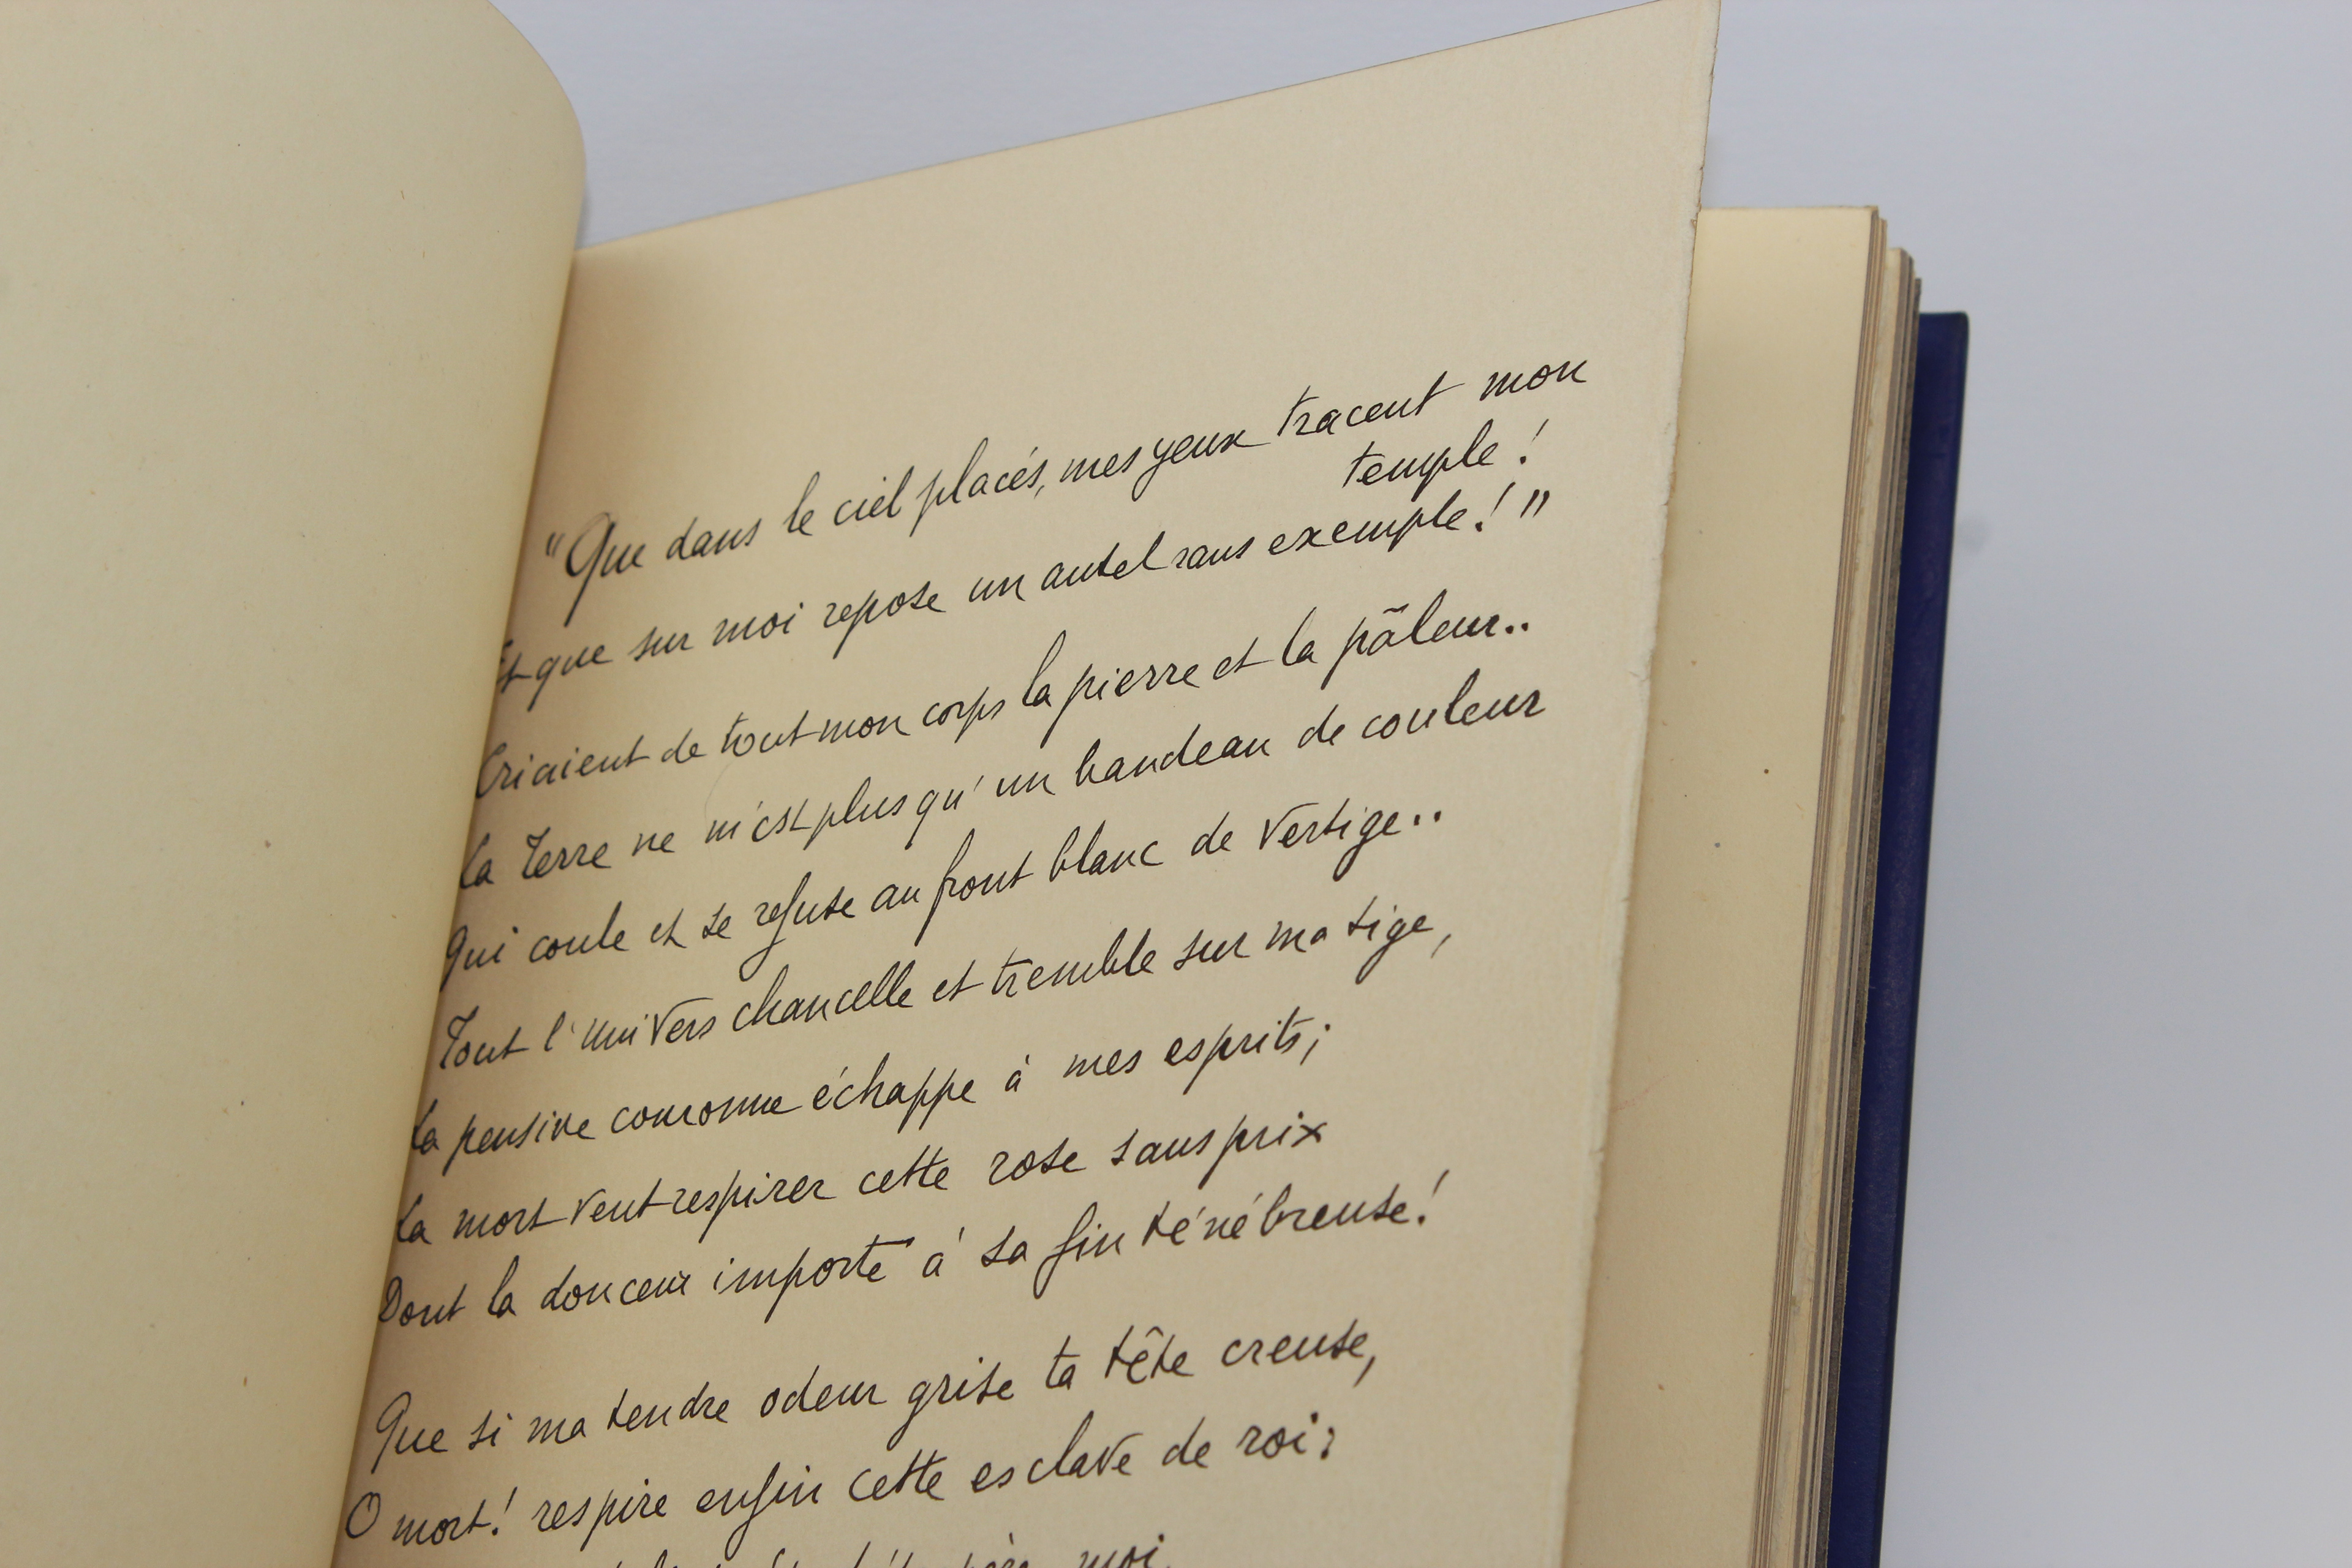 "Que dans le ciel placés, mes yeux tracent mon
temple!
Et que sur moi repose un autel sans exemple!"
Criaient de tout mon corps la pierre et la pâleur..
La Terre ne m'est plus qu'un bandeau de couleur
Qui coule et se refuse au front blanc de vertige..
Tout l'univers chancelle et tremble sur ma tige,
La pensive couronne échappe à mes esprits;
La mort veut respirer cette rose sans prix
Dont la douceur importe à sa fin ténébreuse!
Que si ma tendre odeur grise ta tête creuse,
O mort! respire enfin cette esclave de roi:
moi,